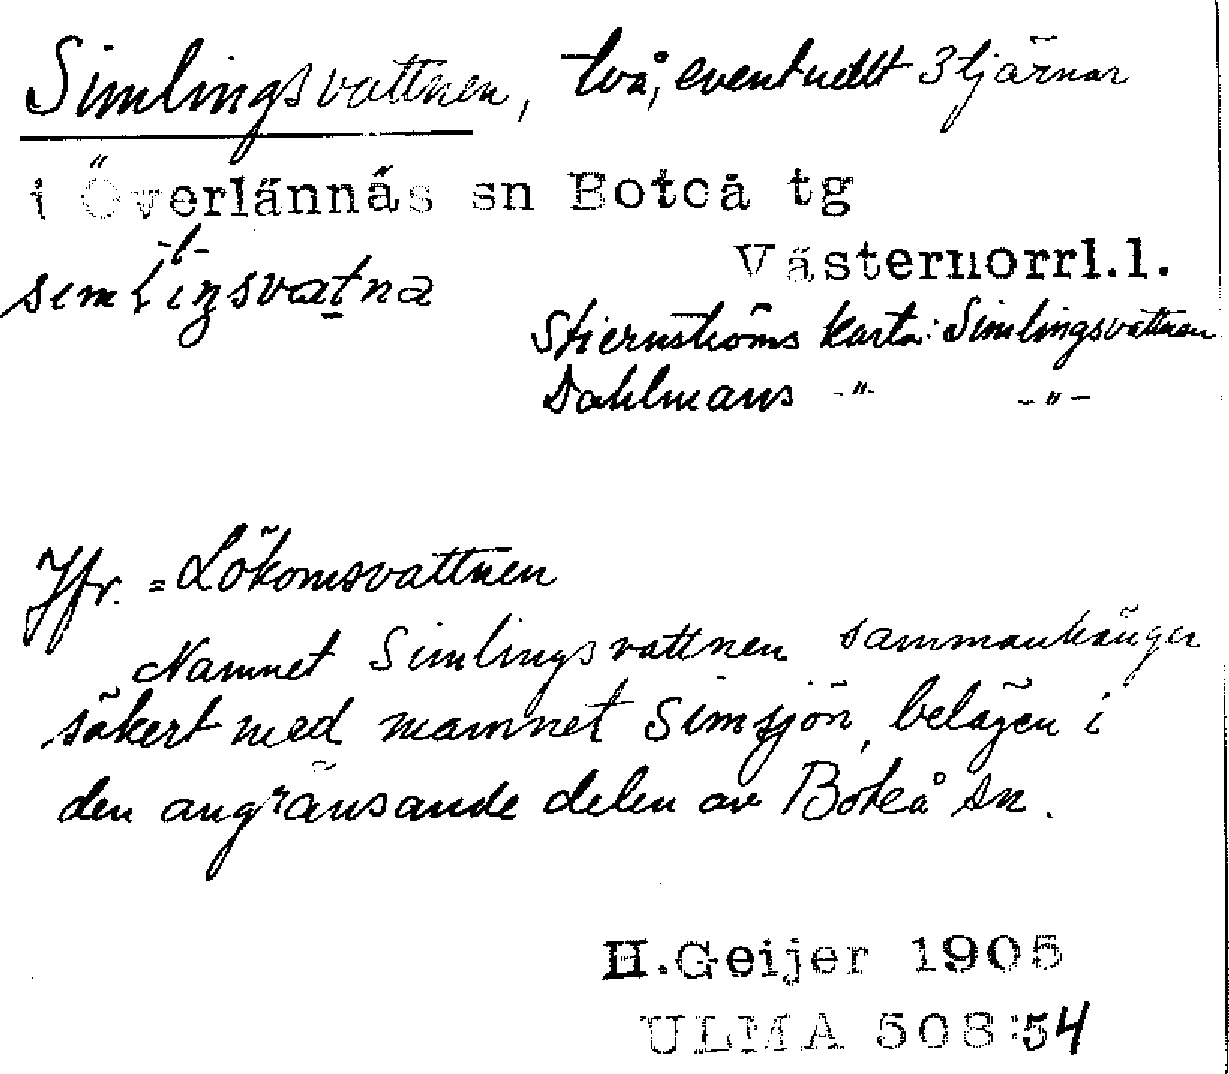 Simlingsvattnen, två, eventuellt 3 tjärnar
i Överlännäs sn Boteå tg
-l-
simliŋsvatna
Västernorrl.l.
Stiernströms karta: Simlingsvattnen
Dahlmans -"- -"-
Jfr. = Lökomsvattnen
Namnet Simlingsvattnen sammanhänger
säkert med namnet Simsjön, belägen i
den angränsande delen av Boteå sn.
H.Geijer 1905
ULMA 508:54